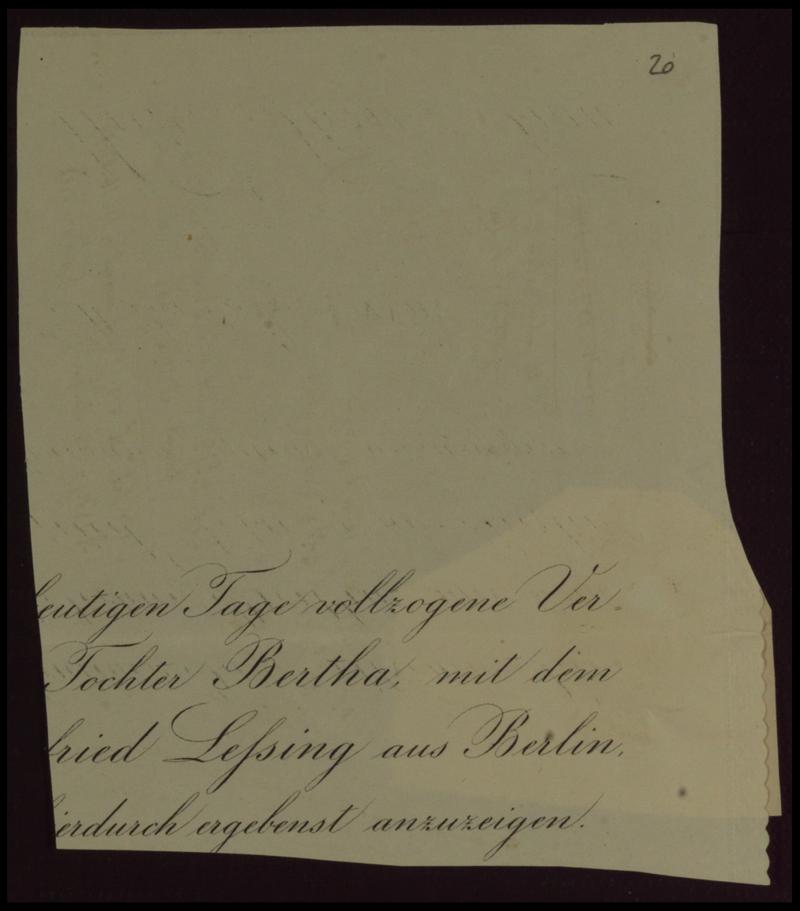 20
eutigen Tage vollzogene Ver-
Tochter Bertha, mit dem
fried Leſsing aus Berlin,
ierdurch ergebenst anzuzeigen.